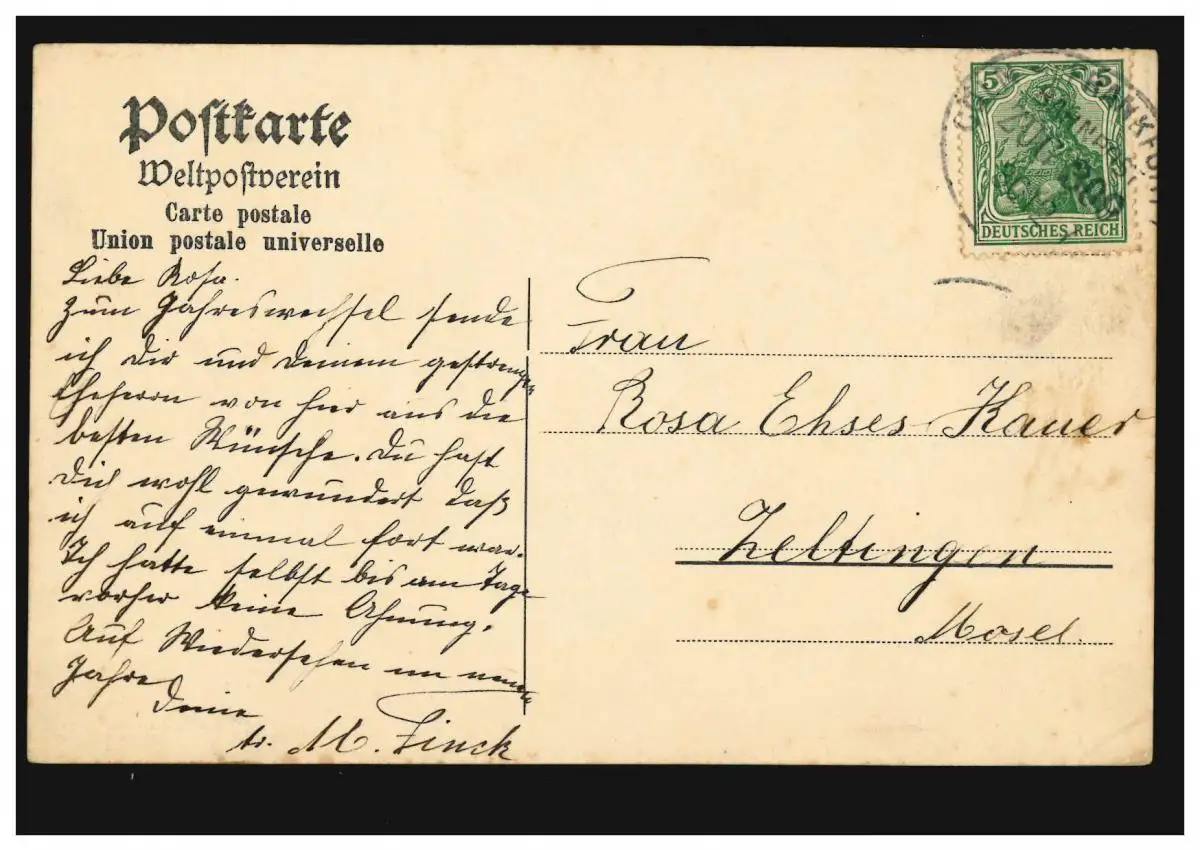 Postkarte
Weltpostverein
Carte postale
Union postale universelle
Liebe Rosa.
Zum Jahreswechsel sende
ich Dir und Deinem gestrengen
Eheherrn von hier aus die
besten Wünsche. Du hast
Dich wohl gewundert daß
ich auf einmal fort war.
Ich hatte selbst bis am Tage
vorher keine Ahnung.
Auf Wiedersehen im neuen
Jahre
Deine
tr. M. Finck
5 5
DEUTSCHES REICH
FRANKFURT
BAHNPOST
ZUG 309
Frau
Rosa Ehses-Kauer
Zeltingen
Mosel.